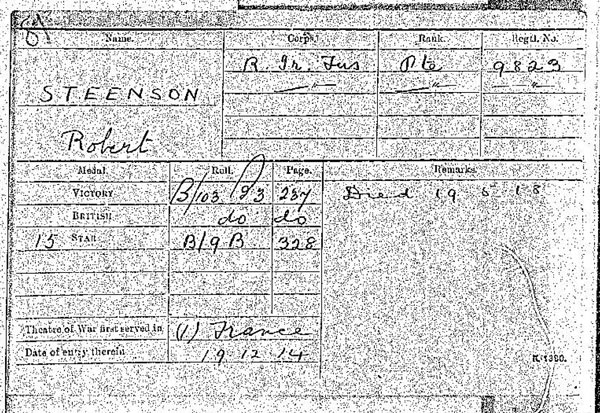 Name. Corps. Rank. Regtl. No.
STEENSON R. Ir. Fus Pte 9823
" " "
Robert
Medal. Roll. Page. Remarks.
VICTORY B/103 B3 237 Died 19 5 18
BRITISH do do
15 STAR B/9 B 328
Theatre of War first served in (1) France
Date of entry therein 19 12 14
K. 1380.